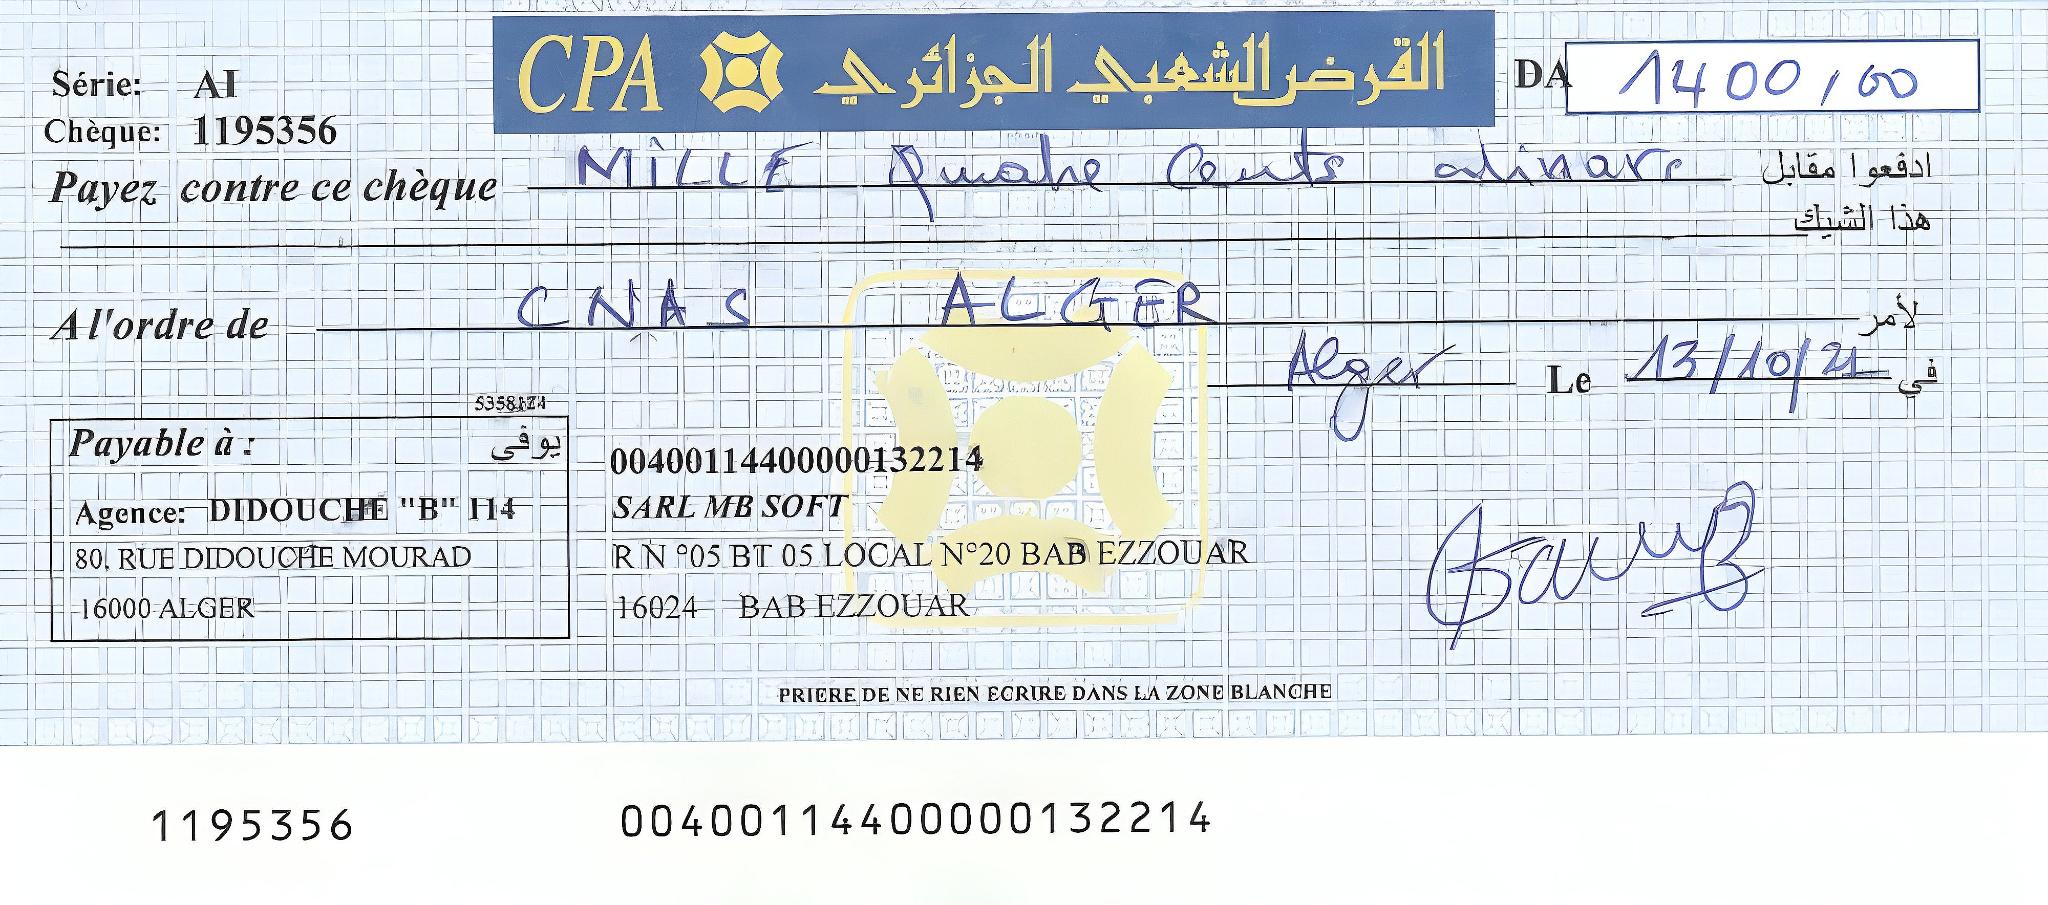 CPA القرض الشعبي الجزائري
Série: AI
DA 1400,00
Chèque: 1195356
Payez contre ce chèque MILLE quatre Cents dinars ادفعوا مقابل
هذا الشيك
A l'ordre de CNAS ALGER لأمر
Alger Le 13/10/21 في
Payable à : يوفى
Agence: DIDOUCHE "B" 114
80, RUE DIDOUCHE MOURAD
16000 ALGER
00400114400000132214
SARL MB SOFT
R N °05 BT 05 LOCAL N°20 BAB EZZOUAR
16024 BAB EZZOUAR
PRIERE DE NE RIEN ECRIRE DANS LA ZONE BLANCHE
1195356 00400114400000132214